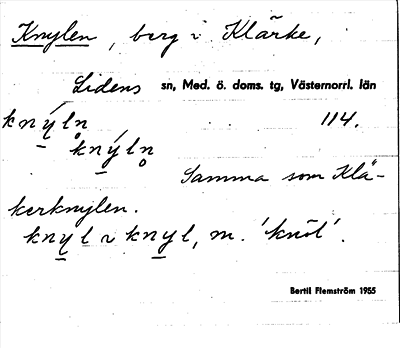 Knylen, berg i Klärke,
Lidens sn, Med. ö. doms. tg, Västernorrl. län
kný̱ln̥ 114.
kný̱ln̥
Samma som Klä-
kerknylen.
kny̱l ~ kny̱l, m. 'knöl'.
Bertil Flemström 1955